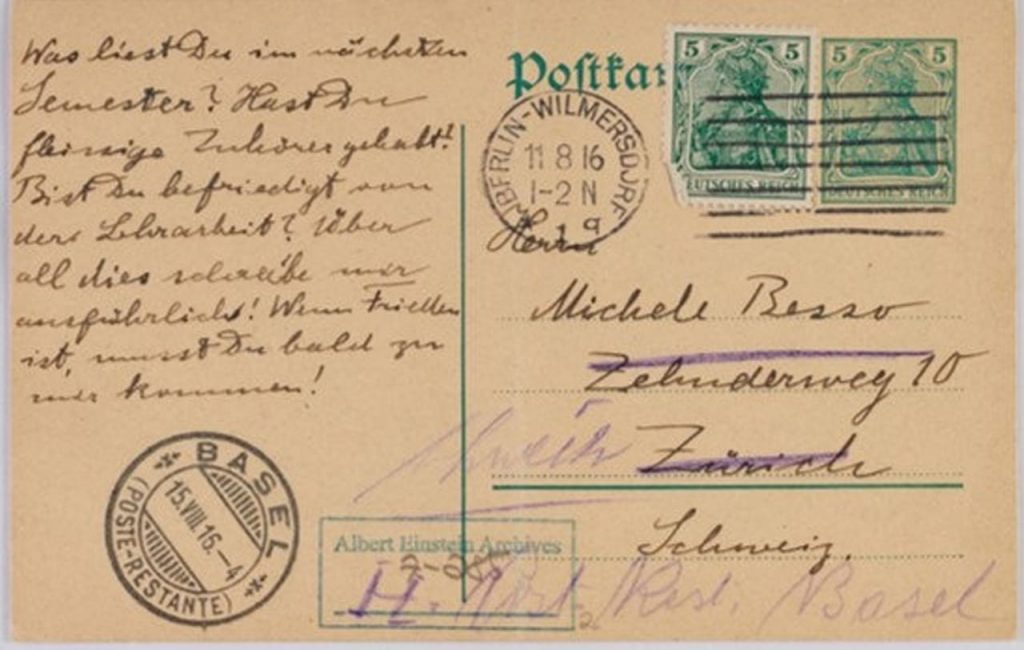 Was liest Du im nächsten
Semester? Hast Du
fleissige Zuhörer gehabt?
Bist Du befriedigt von
der Lehrarbeit? Über
all dies schreibe mir
ausführlich! Wenn Frieden
ist, musst Du bald zu
mir kommen!
BASEL
15.VIII.16.–4
(POSTE-RESTANTE)
Postkar
5 5
5 5
DEUTSCHES REICH
DEUTSCHES REICH
BERLIN-WILMERSDORF
11 8 16
1-2 N
Herrn
Michele Besso
Zehnderweg 10
Zürich
Schweiz.
Albert Einstein Archives
Rest. Basel